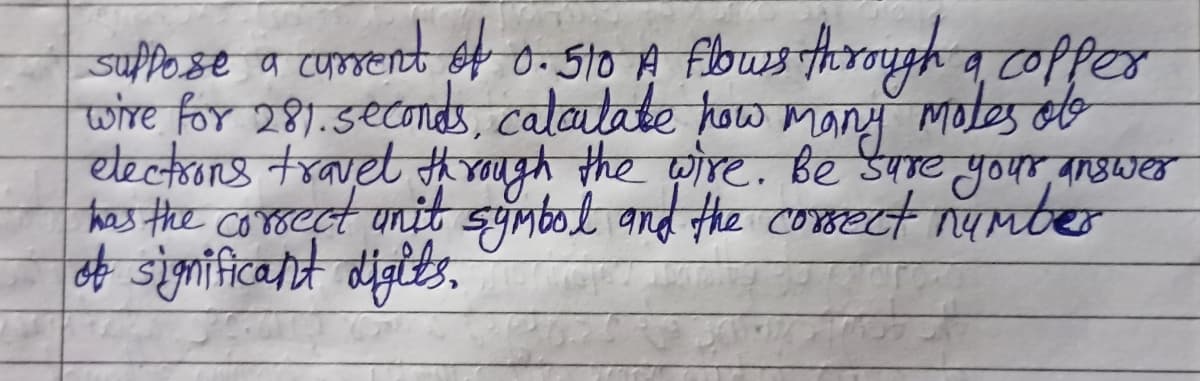 suppose a current of 0.510 A flows through a copper
wire for 281. seconds, calculate how many moles of
electrons travel through the wire. Be sure your answer
has the correct unit symbol and the correct number
of significant digits.